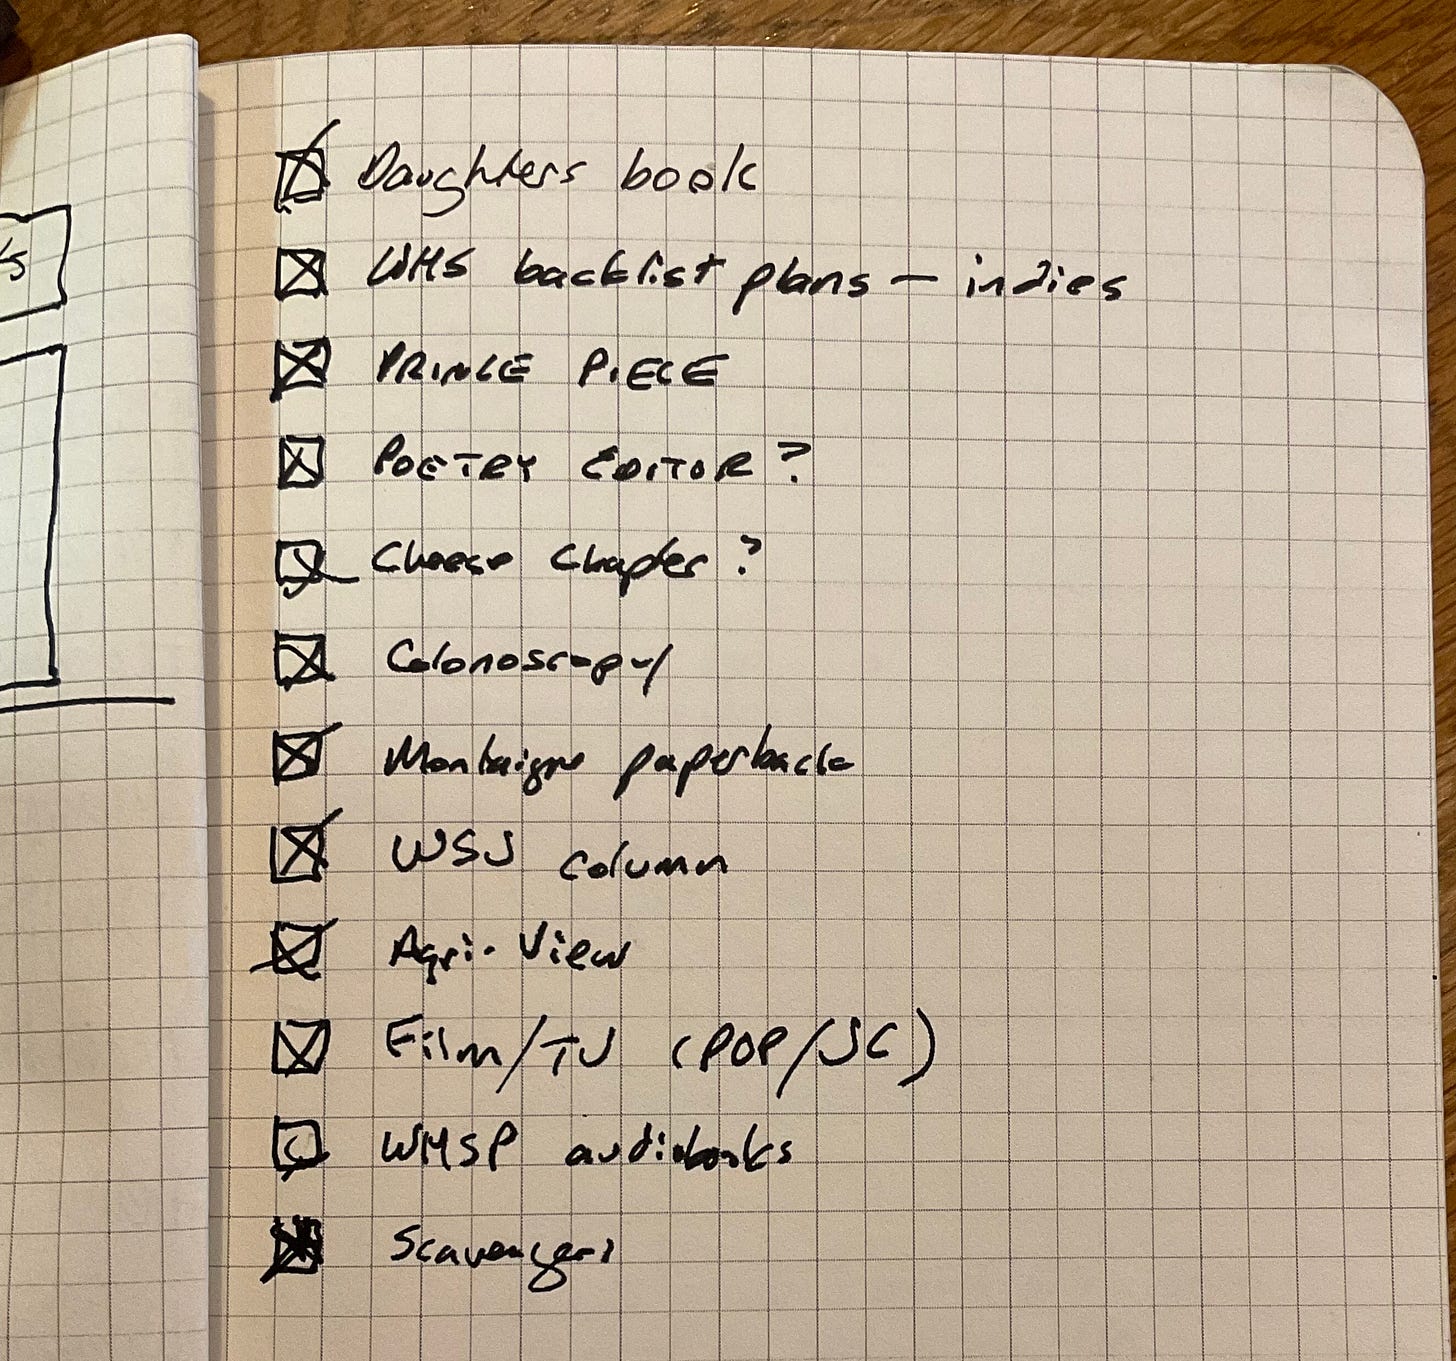 Daughters book
WHS backlist plans – indies
PRINCE PIECE
POETRY EDITOR?
Cheese Chapter?
Colonoscopy
Montaigne paperback
WSJ column
Agri-View
Film/TV (POP/JC)
WHSP audiobooks
Scavengers